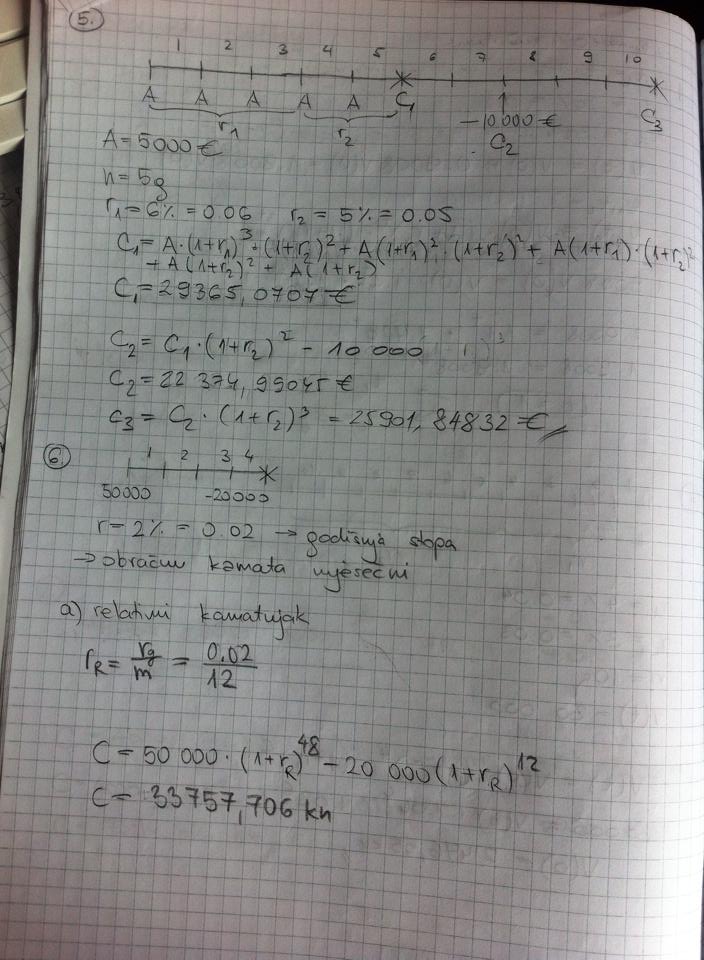 5.
1 2 3 4 5 6 7 8 9 10
A A A A A C₁ -10 000 € C₃
r₁ r₂ C₂
A = 5000 €
n = 5g
r₁ = 6% = 0.06 r₂ = 5% = 0.05
C₁ = A·(1+r₁)³·(1+r₂)² + A(1+r₁)²·(1+r₂)² + A(1+r₁)·(1+r₂)²
+ A(1+r₂)² + A(1+r₂)
C₁ = 29365,0707 €
C₂ = C₁·(1+r₂)² - 10 000
C₂ = 22 374,99045 €
C₃ = C₂·(1+r₂)³ = 25901,84832 €
6.
1 2 3 4
50000 -20000
r = 2% = 0.02 → godišnja stopa
→ obračun kamata mjesečni
a) relativni kamatnjak
r_R = r_g/m = 0.02/12
C = 50 000·(1+r_R)⁴⁸ - 20 000(1+r_R)¹²
C = 33757,706 kn